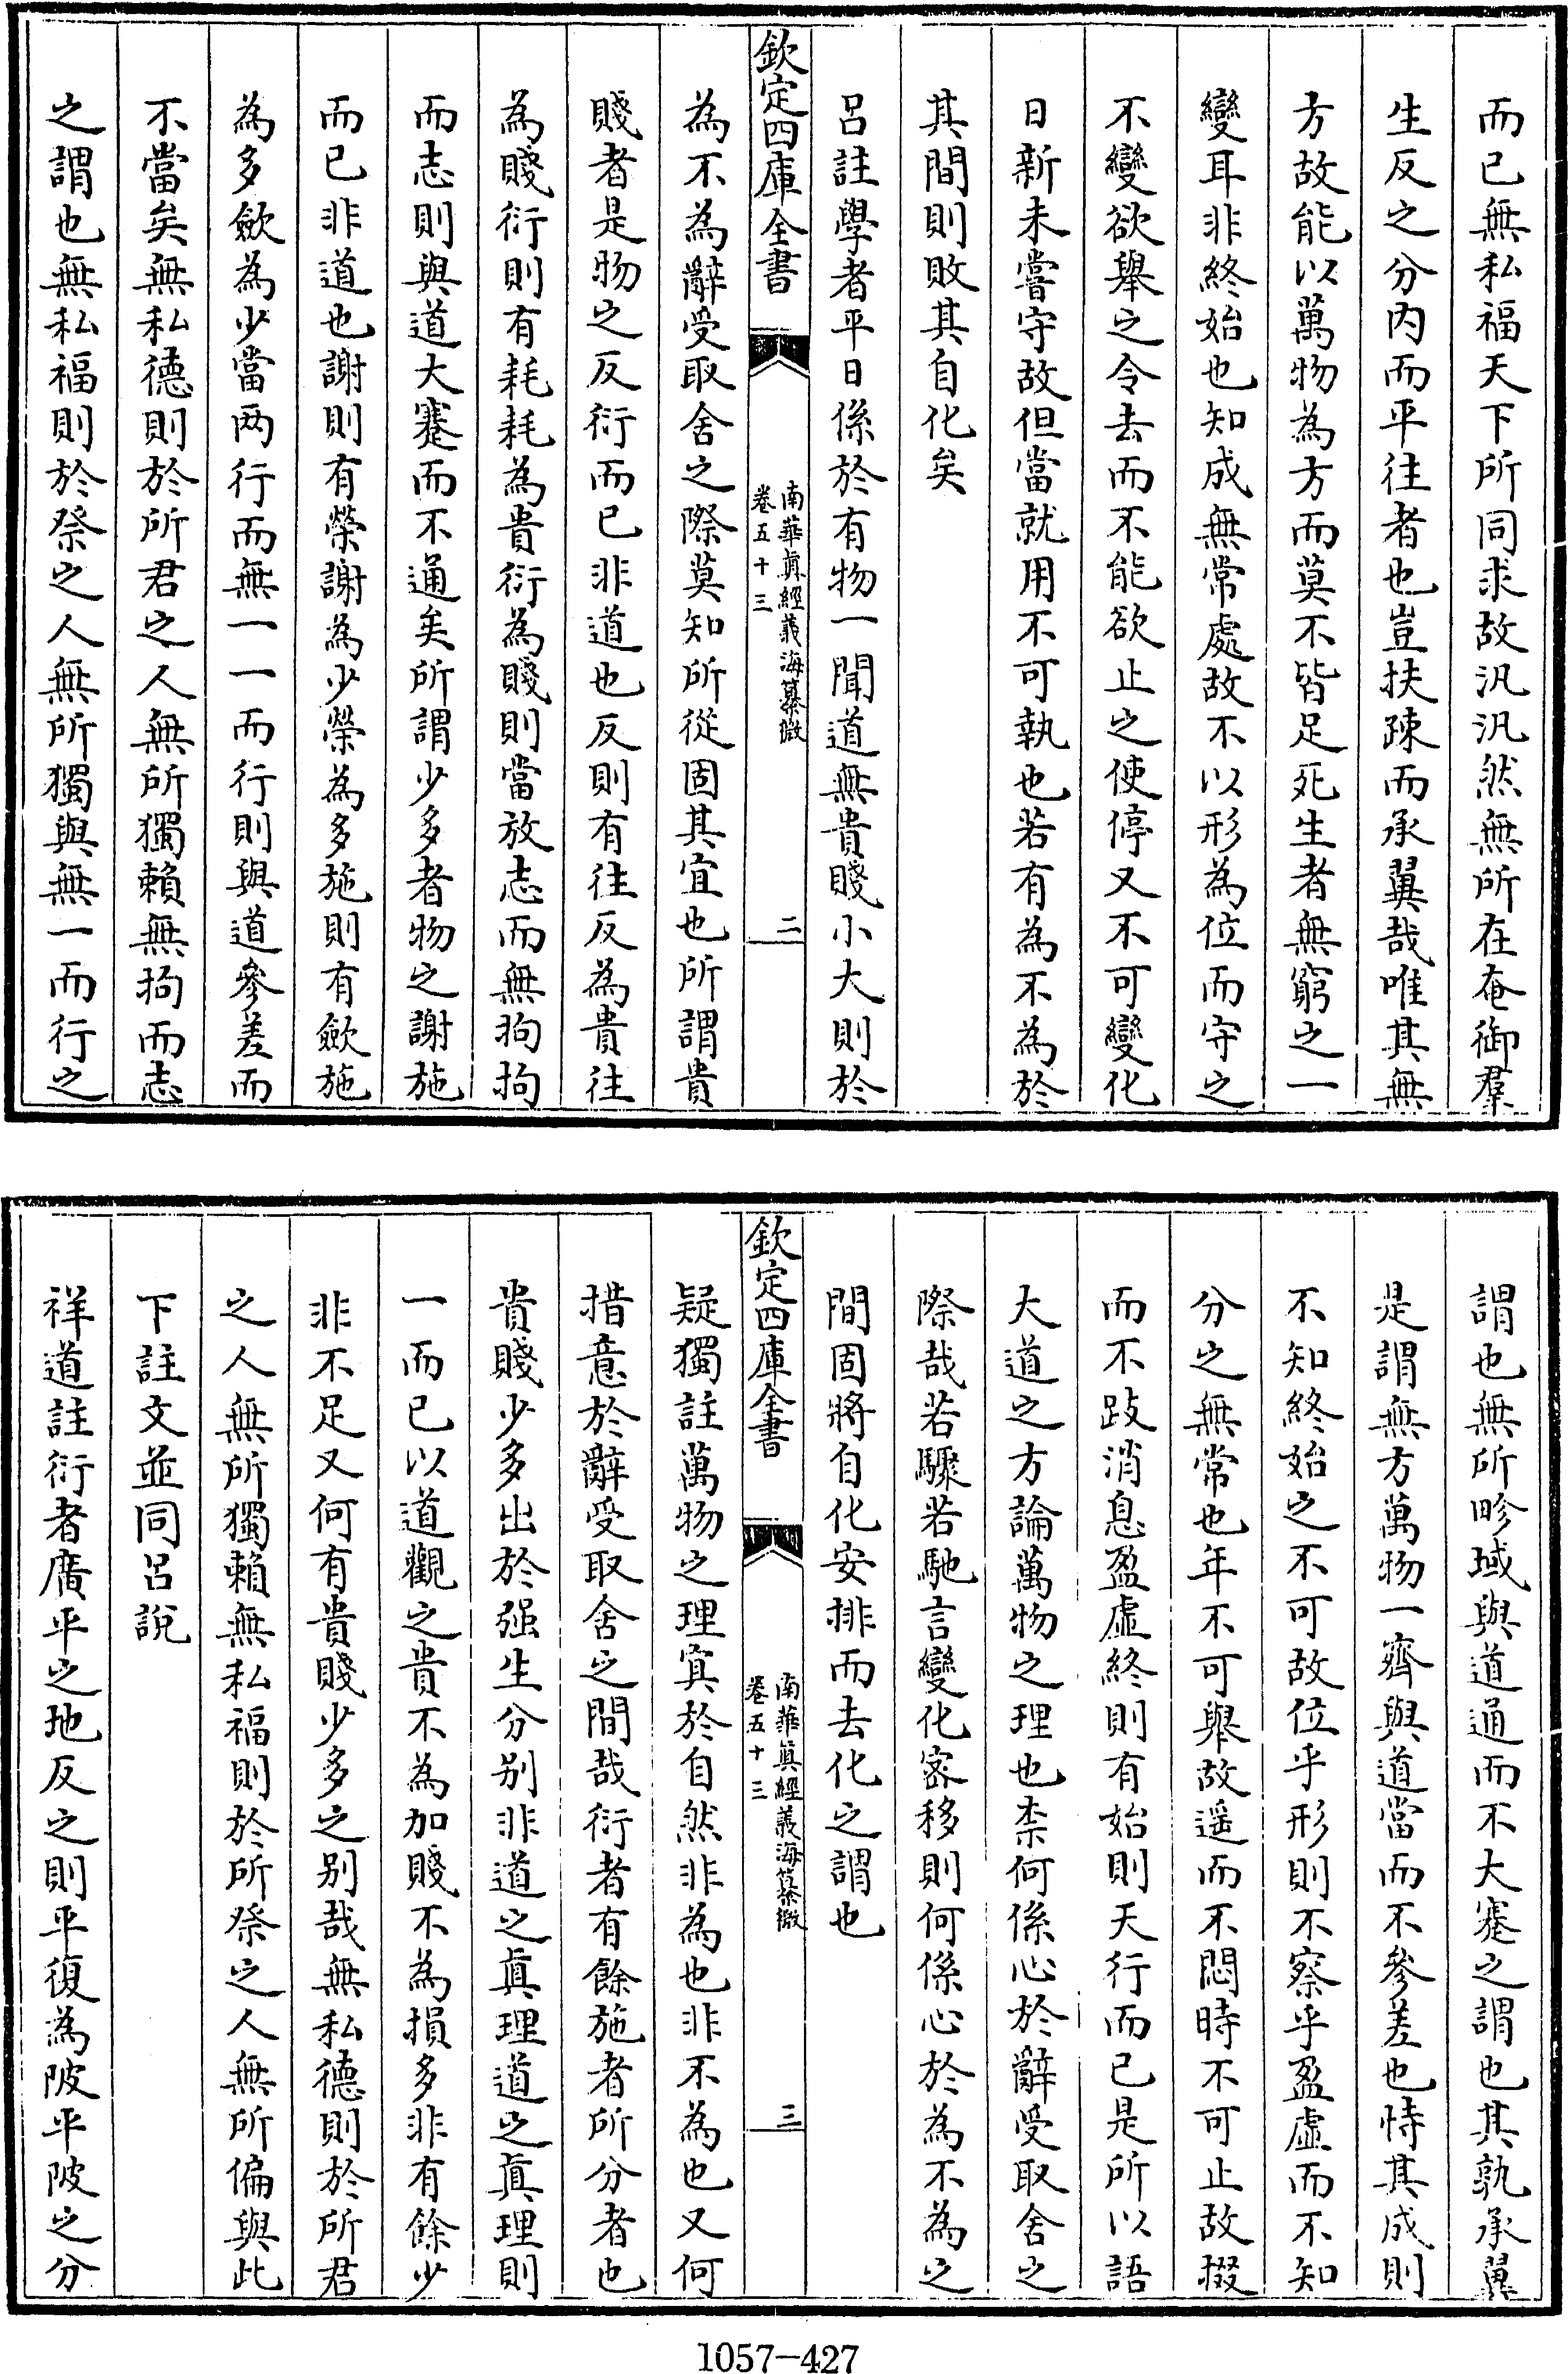 而已無私福天下所同求故汎汎然無所在奄御羣
生反之分内而平往者也豈扶疎而承翼哉唯其無
方故能以萬物為方而莫不皆足死生者無窮之一
變耳非終始也知成無常處故不以形為位而守之
不變欲舉之令去而不能欲止之使停又不可變化
日新未嘗守故但當就用不可執也若有為不為於
其間則敗其自化矣
吕註學者平日係於有物一聞道無貴賤小大則於
欽定四庫全書
南華真經義海纂微
卷五十三
二
為不為辭受取舍之際莫知所從固其宜也所謂貴
賤者是物之反衍而已非道也反則有往反為貴往
為賤衍則有耗耗為貴衍為賤則當放志而無拘拘
而志則與道大蹇而不通矣所謂少多者物之謝施
而已非道也謝則有榮謝為少榮為多施則有歛施
為多歛為少當两行而無一一而行則與道參差而
不當矣無私德則於所君之人無所獨賴無拘而志
之謂也無私福則於祭之人無所獨與無一而行之
謂也無所畛域與道通而不大蹇之謂也其孰承翼
是謂無方萬物一齊與道當而不參差也恃其成則
不知終始之不可故位乎形則不察乎盈虛而不知
分之無常也年不可舉故遥而不悶時不可止故掇
而不跂消息盈虛終則有始則天行而已是所以語
大道之方論萬物之理也柰何係心於辭受取舍之
際哉若驟若馳言變化宻移則何係心於為不為之
間固將自化安排而去化之謂也
欽定四庫全書
南華真經義海纂微
卷五十三
三
疑獨註萬物之理寘於自然非為也非不為也又何
措意於辭受取舍之間哉衍者有餘施者所分者也
貴賤少多出於强生分别非道之真理道之真理則
一而已以道觀之貴不為加賤不為損多非有餘少
非不足又何有貴賤少多之别哉無私德則於所君
之人無所獨賴無私福則於所祭之人無所偏與此
下註文並同吕說
祥道註衍者廣平之地反之則平復為陂平陂之分
1057-427